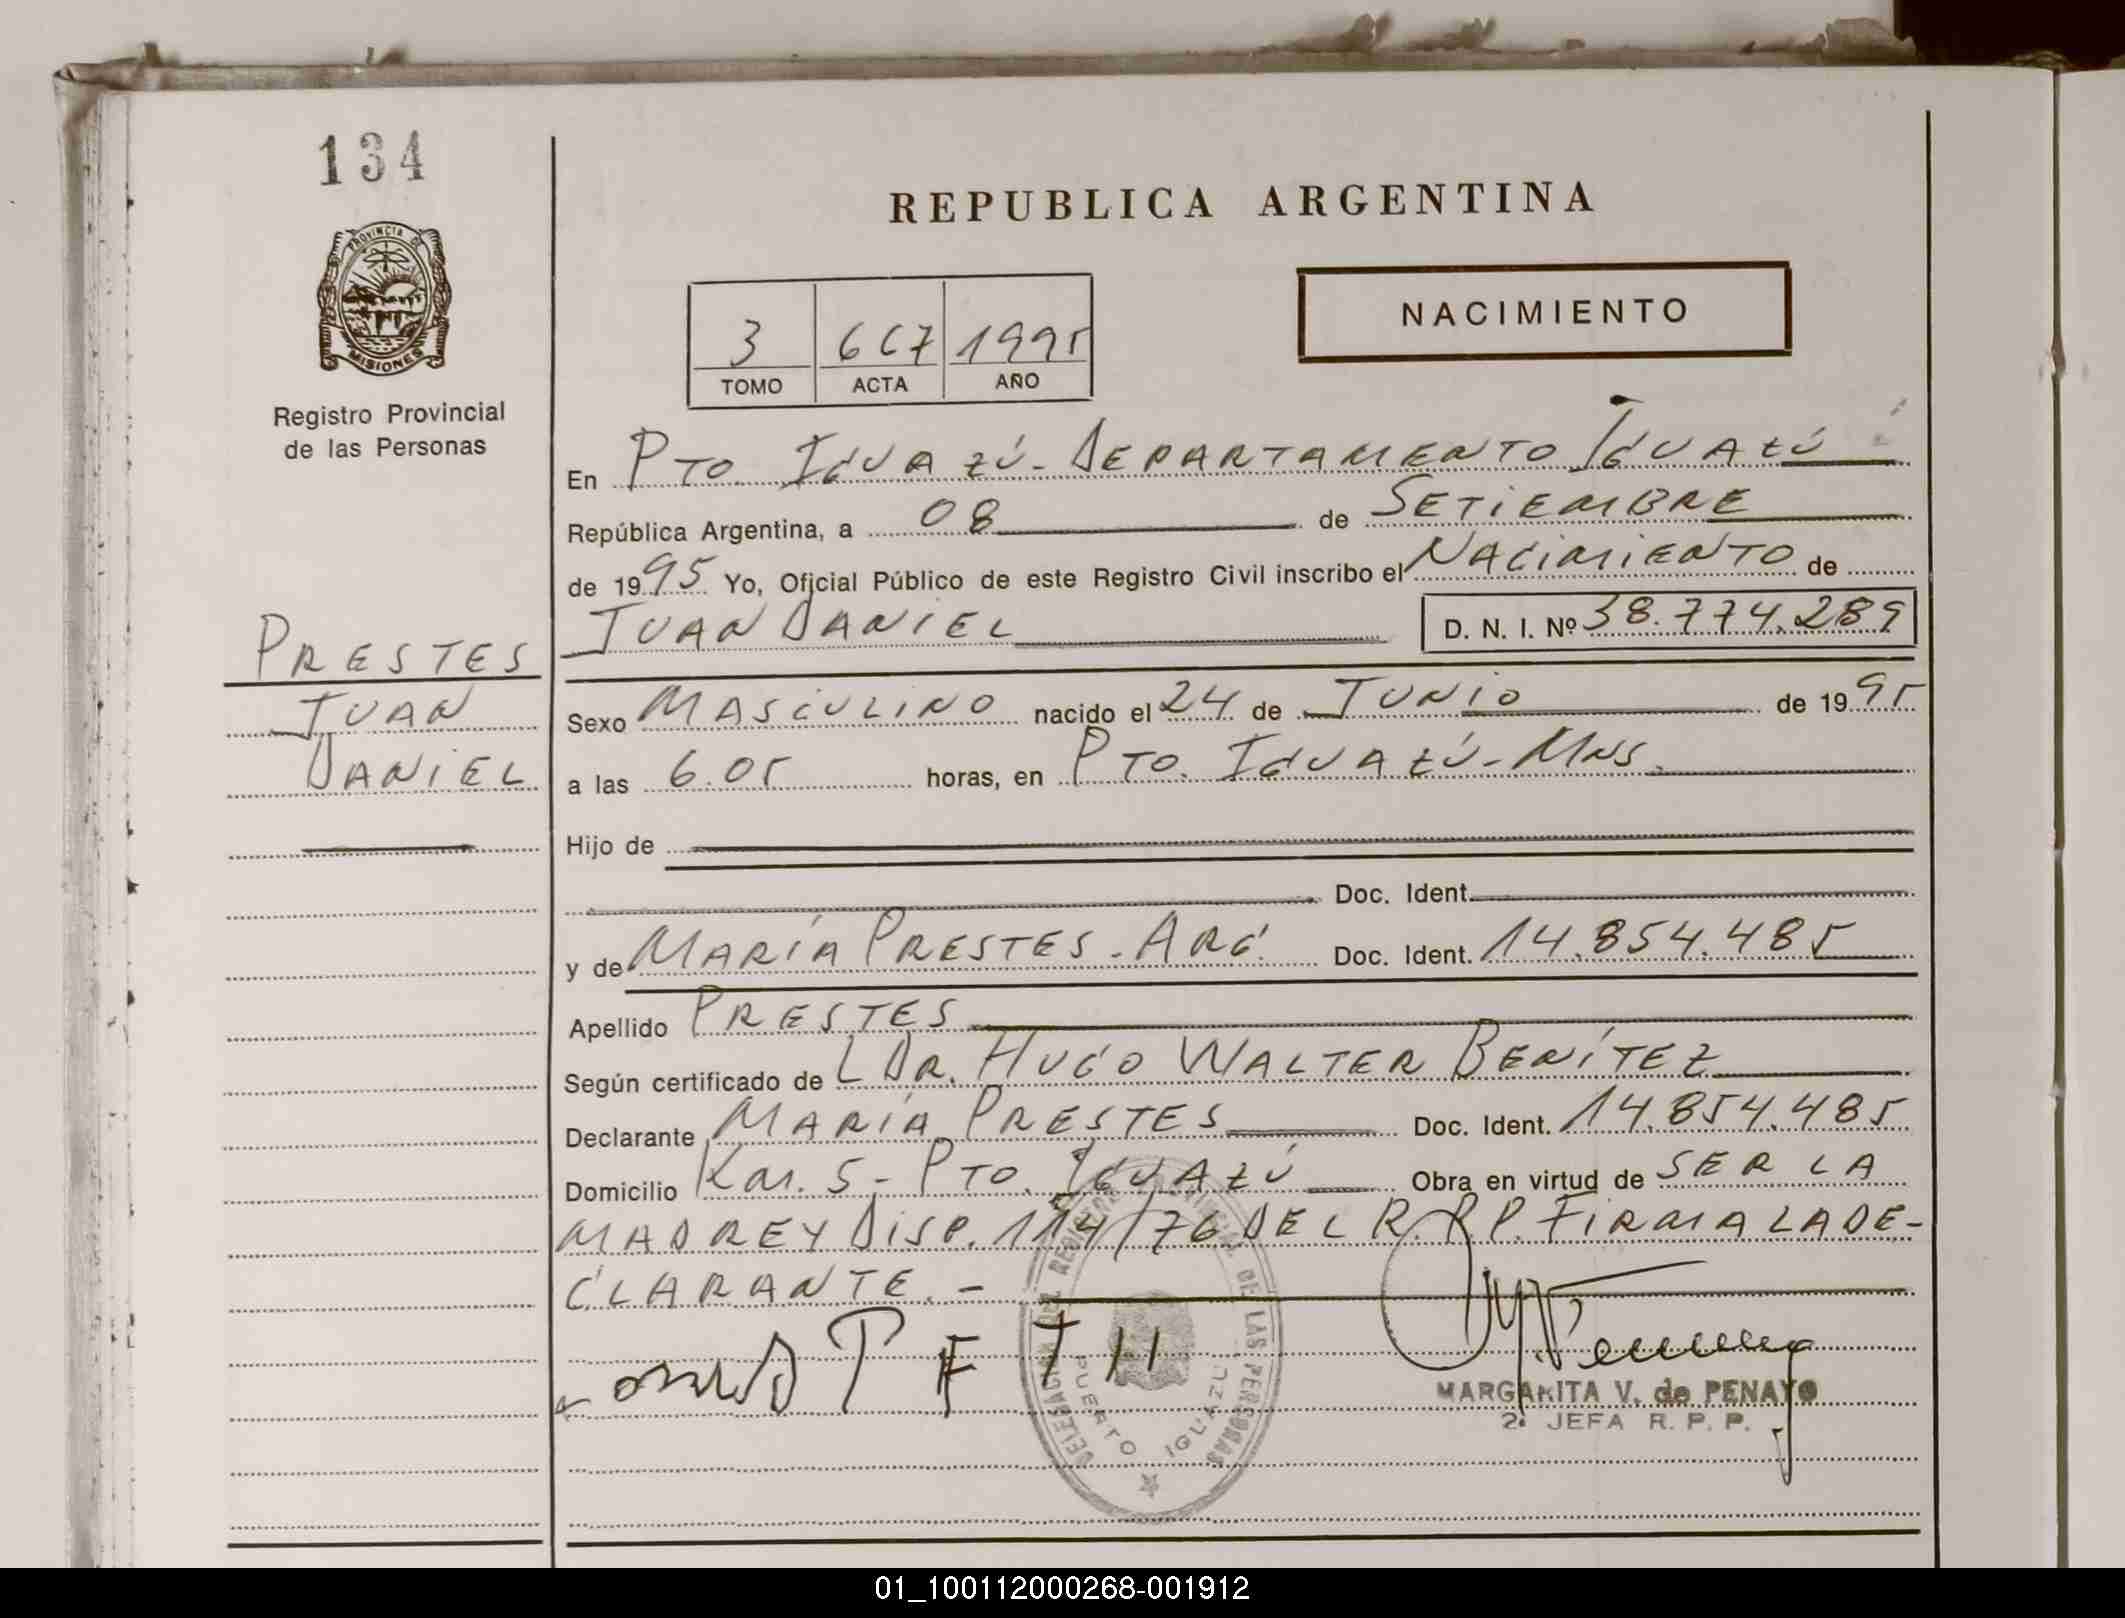 134
PROVINCIA DE
MISIONES
Registro Provincial
de las Personas
REPUBLICA ARGENTINA
NACIMIENTO
3 667 1995
TOMO ACTA AÑO
En PTO. IGUAZÚ - DEPARTAMENTO IGUAZÚ
República Argentina, a 08 de SETIEMBRE
de 1995 Yo, Oficial Público de este Registro Civil inscribo el NACIMIENTO de
JUAN DANIEL D. N. I. Nº 38.774.289
PRESTES
JUAN
DANIEL
Sexo MASCULINO nacido el 24 de JUNIO de 1995
a las 6.05 horas, en PTO. IGUAZÚ - MNS.
Hijo de
Doc. Ident.
y de MARÍA PRESTES - ARG. Doc. Ident. 14.854.485
Apellido PRESTES
Según certificado de L DR. HUGO WALTER BENÍTEZ
Declarante MARÍA PRESTES Doc. Ident. 14.854.485
Domicilio KM. 5 - PTO. IGUAZÚ Obra en virtud de SER LA
MADRE Y DISP. 114/76 DEL R.P.P. FIRMA LA DE-
CLARANTE. -
DELEGACION DEL REGISTRO PROVINCIAL DE LAS PERSONAS
PUERTO IGUAZU
MARGARITA V. de PENAYO
2ª JEFA R. P. P.
01_100112000268-001912